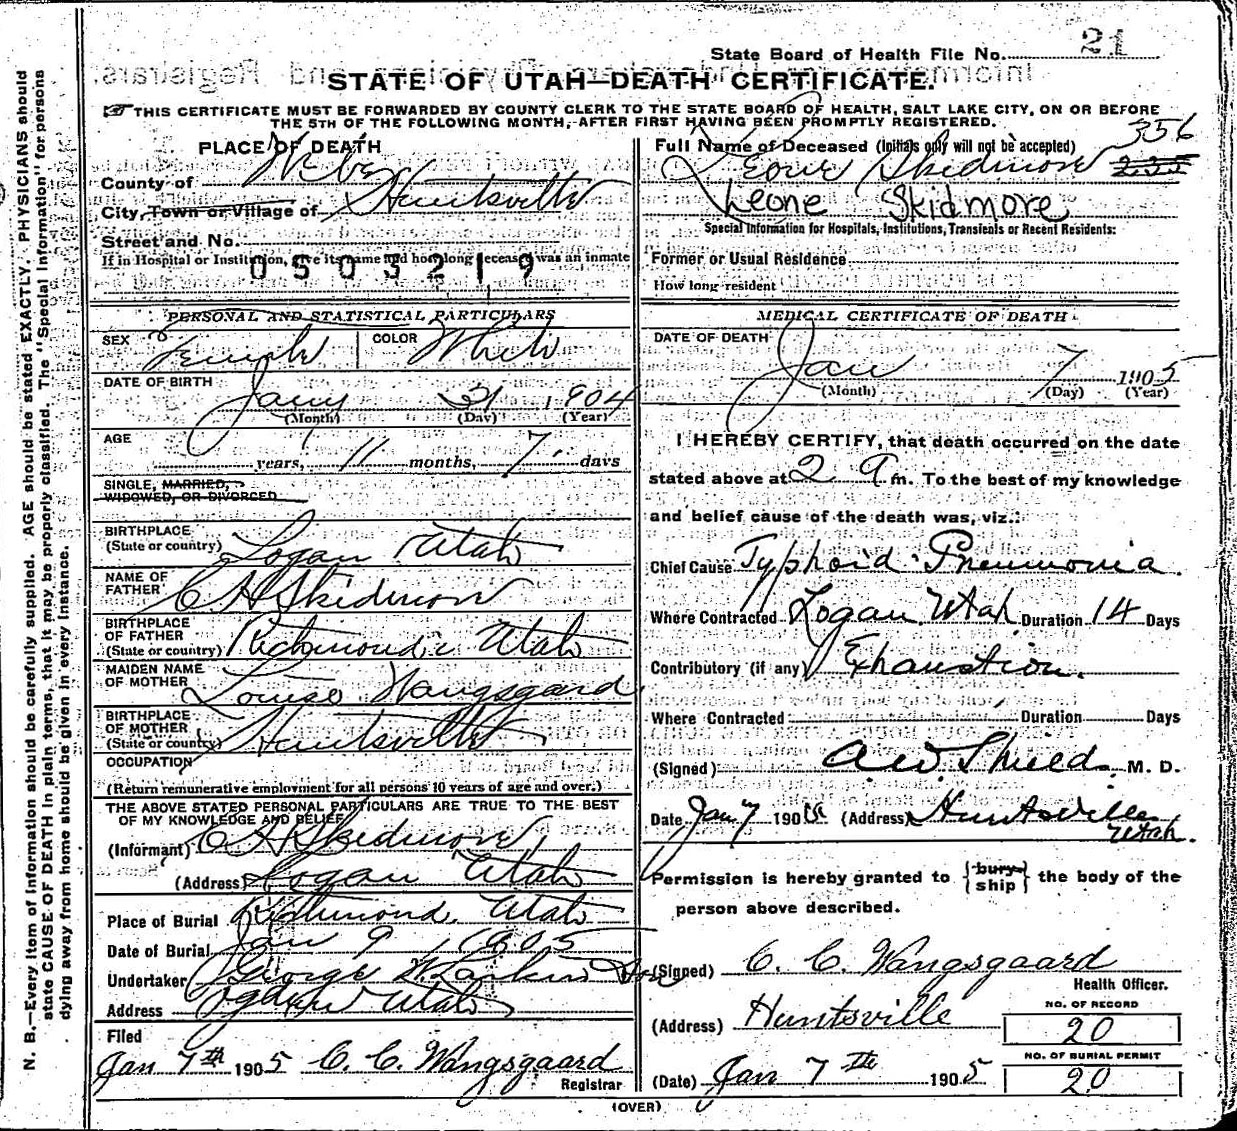 21
State Board of Health File No.
STATE OF UTAH—DEATH CERTIFICATE.
THIS CERTIFICATE MUST BE FORWARDED BY COUNTY CLERK TO THE STATE BOARD OF HEALTH, SALT LAKE CITY, ON OR BEFORE
THE 5TH OF THE FOLLOWING MONTH, AFTER FIRST HAVING BEEN PROMPTLY REGISTERED.
N. B.—Every item of information should be carefully supplied. AGE should be stated EXACTLY. PHYSICIANS should
state CAUSE OF DEATH in plain terms, that it may be properly classified. The "Special Information" for persons
dying away from home should be given in every instance.
PLACE OF DEATH
County of Weber
City, Town or Village of Huntsville
Street and No.
If in Hospital or Institution, give its name and how long deceased was an inmate
0503219
PERSONAL AND STATISTICAL PARTICULARS
SEX Female COLOR White
DATE OF BIRTH
Jany 31 1904
(Month) (Day) (Year)
AGE
years, 11 months, 7 days
SINGLE, MARRIED,
WIDOWED, OR DIVORCED
BIRTHPLACE
(State or country) Logan Utah
NAME OF
FATHER C A Skidmore
BIRTHPLACE
OF FATHER
(State or country) Richmond Utah
MAIDEN NAME
OF MOTHER Louise Wangsgaard
BIRTHPLACE
OF MOTHER
(State or country) Huntsville
OCCUPATION
(Return remunerative employment for all persons 10 years of age and over.)
THE ABOVE STATED PERSONAL PARTICULARS ARE TRUE TO THE BEST
OF MY KNOWLEDGE AND BELIEF
(Informant) C A Skidmore
(Address) Logan Utah
Place of Burial Richmond, Utah
Date of Burial Jan 9, 1905
Undertaker George W. Larkin
Address Ogden Utah
Filed
Jan 7th 1905 C. C. Wangsgaard
Registrar
Full Name of Deceased (Initials only will not be accepted) 356
Leone Skidmore
Leone Skidmore
Special Information for Hospitals, Institutions, Transients or Recent Residents:
Former or Usual Residence
How long resident
MEDICAL CERTIFICATE OF DEATH
DATE OF DEATH
Jan 7 1905
(Month) (Day) (Year)
I HEREBY CERTIFY, that death occurred on the date
stated above at 2 a m. To the best of my knowledge
and belief cause of the death was, viz.:
Chief Cause Typhoid Pneumonia.
Where Contracted Logan Utah Duration 14 Days
Contributory (if any) Exhaustion.
Where Contracted Duration Days
(Signed) A.W. Shields M. D.
Date Jan 7 190 (Address) Huntsville
Utah.
Permission is hereby granted to {bury ship} the body of the
person above described.
(Signed) C. C. Wangsgaard
Health Officer.
(Address) Huntsville
NO. OF RECORD
20
NO. OF BURIAL PERMIT
20
(Date) Jan 7th 1905
(OVER)